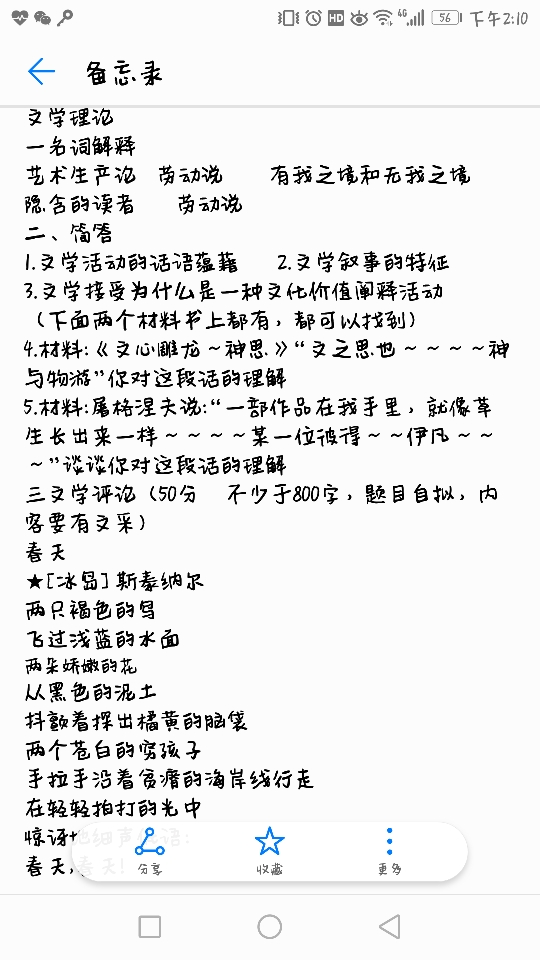 HD 4G 56 下午2:10
备忘录
文学理论
一名词解释
艺术生产论 劳动说 有我之境和无我之境
隐含的读者 劳动说
二、简答
1.文学活动的话语蕴藉 2.文学叙事的特征
3.文学接受为什么是一种文化价值阐释活动
（下面两个材料书上都有，都可以找到）
4.材料:《文心雕龙～神思》“文之思也～～～～神
与物游”你对这段话的理解
5.材料:屠格涅夫说:“一部作品在我手里，就像草
生长出来一样～～～～某一位彼得～～伊凡～～
～”谈谈你对这段话的理解
三文学评论（50分 不少于800字，题目自拟，内
容要有文采）
春天
★[冰岛]斯泰纳尔
两只褐色的鸟
飞过浅蓝的水面
两朵娇嫩的花
从黑色的泥土
抖颤着探出橘黄的脑袋
两个苍白的穷孩子
手拉手沿着贫瘠的海岸线行走
在轻轻拍打的光中
惊讶地细声低语:
春天,春天!
分享 收藏 更多